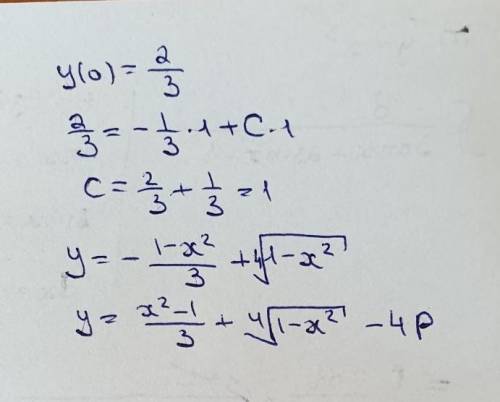 y(0) = 2/3
2/3 = - 1/3 · 1 + C · 1
C = 2/3 + 1/3 = 1
y = - (1-x²)/3 + ∜(1-x²)
y = (x²-1)/3 + ∜(1-x²) - 4p